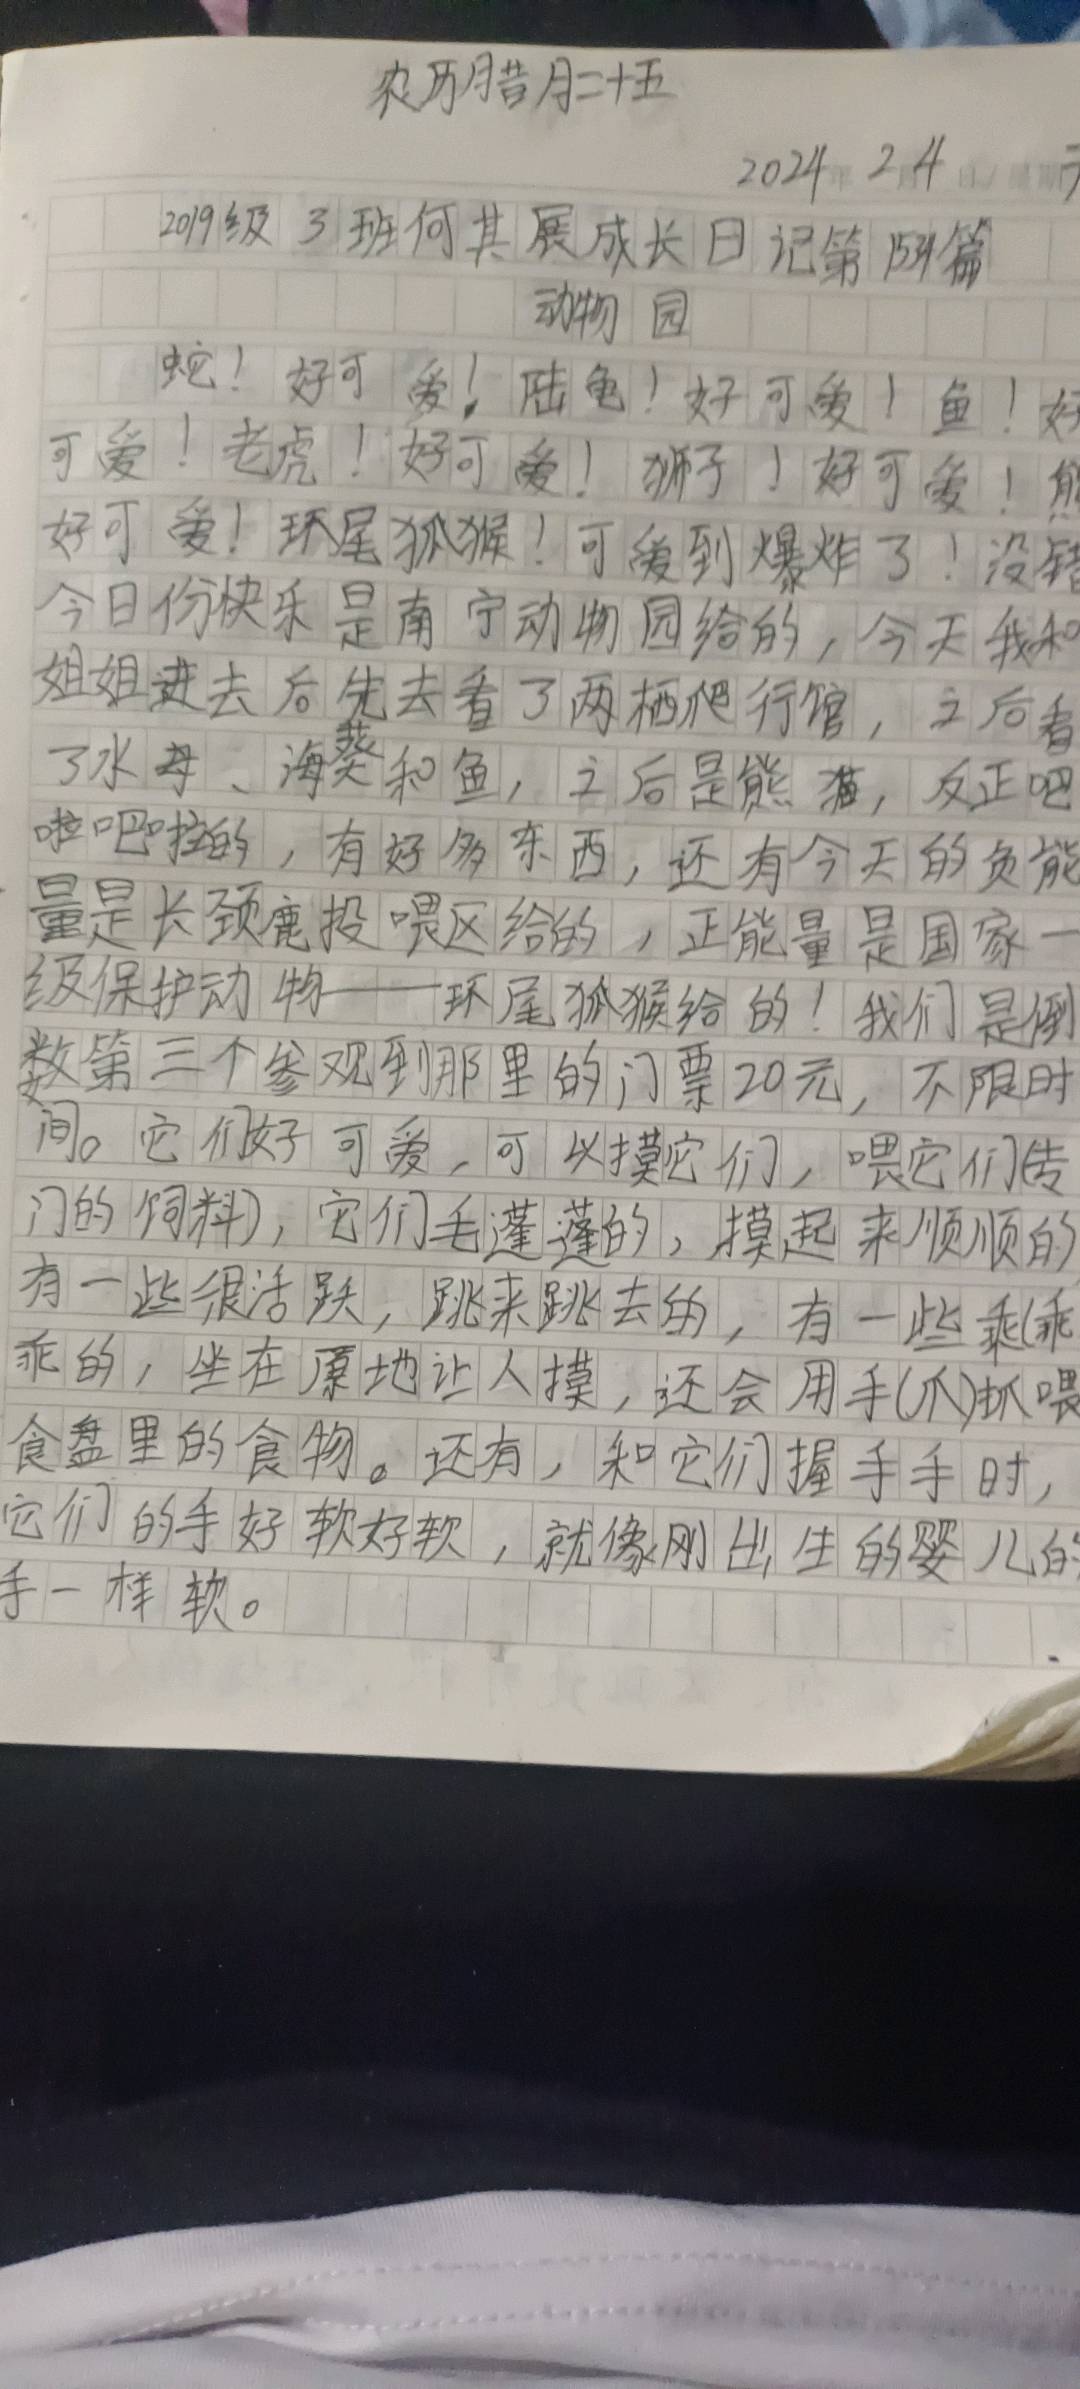 农历腊月二十五
2024年 2月4日/星期
2019级3班何其展成长日记第1534篇
动物园
蛇！好可爱！陆龟！好可爱！鱼！好
可爱！老虎！好可爱！狮子！好可爱！熊
好可爱！环尾狐猴！可爱到爆炸了！没错
今日份快乐是南宁动物园给的，今天我和
姐姐进去后先去看了两栖爬行馆，之后看
了水母、海葵和鱼，之后是熊猫，反正吧
啦吧啦的，有好多东西，还有今天的负能
量是长颈鹿投喂区给的，正能量是国家一
级保护动物——环尾狐猴给的！我们是倒
数第三个参观到那里的门票20元，不限时
间。它们好可爱，可以摸它们，喂它们(专
门的饲料)，它们毛蓬蓬的，摸起来顺顺的
有一些很活跃，跳来跳去的，有一些乖(乖
乖的，坐在原地让人摸，还会用手(爪)抓喂
食盘里的食物。还有，和它们握手手时，
它们的手好软好软，就像刚出生的婴儿的
手一样软。